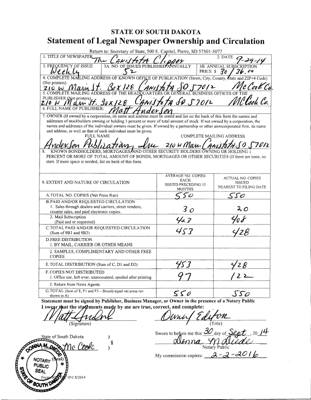 STATE OF SOUTH DAKOTA
Statement of Legal Newspaper Ownership and Circulation
Return to: Secretary of State, 500 E. Capitol, Pierre, SD 57501-5077
1. TITLE OF NEWSPAPER The Canistota Clipper 2. DATE 9-29-14
3. FREQUENCY OF ISSUE Weekly 3A. NO. OF ISSUES PUBLISHED ANNUALLY 52 3B. ANNUAL SUBSCRIPTION PRICE $
4. COMPLETE MAILING ADDRESS OF KNOWN OFFICE OF PUBLICATION (Street, City, County, State and ZIP+4 Code)
(Not printers)
210 W Main St. Box 128 Canistota SD 57012 McCook Co.
5. COMPLETE MAILING ADDRESS OF THE HEADQUARTERS OF GENERAL BUSINESS OFFICES OF THE
PUBLISHER (Not printers)
210 W Main St. Box 128 Canistota SD 57012 McCook Co.
6. FULL NAME OF PUBLISHER: Matt Anderson
7. OWNER (If owned by a corporation, its name and address must be stated and list on the back of this form the names and
addresses of stockholders owning or holding 1 percent or more of total amount of stock. If not owned by a corporation, the
names and addresses of the individual owners must be given. If owned by a partnership or other unincorporated firm, its name
and address, as well as that of each individual must be given.)
FULL NAME COMPLETE MAILING ADDRESS
Anderson Publications, Inc 210 W Main Canistota SD 57012
8. KNOWN BONDHOLDERS, MORTGAGEES AND OTHER SECURITY HOLDERS OWNING OR HOLDING 1
PERCENT OR MORE OF TOTAL AMOUNT OF BONDS, MORTGAGES OR OTHER SECURITIES (If there are none, so
state. If more space is needed, list on back of this form.
9. EXTENT AND NATURE OF CIRCULATION
AVERAGE NO. COPIES
EACH
ISSUED PRECEDING 12
MONTHS
ACTUAL NO. COPIES
ISSUED
NEAREST TO FILING DATE
A. TOTAL NO. COPIES (Net Press Run) 550 550
B. PAID AND/OR REQUESTED CIRCULATION
1. Sales through dealers and carriers, street vendors,
counter sales, and paid electronic copies. 30 20
2. Mail Subscription
(Paid and or requested) 423 408
C. TOTAL PAID AND/OR REQUESTED CIRCULATION
(Sum of 9B1 and 9B2) 453 428
D. FREE DISTRIBUTION
1. BY MAIL, CARRIER OR OTHER MEANS
2. SAMPLES, COMPLIMENTARY AND OTHER FREE
COPIES
E. TOTAL DISTRIBUTION (Sum of C, D1 and D2) 453 428
F. COPIES NOT DISTRIBUTED
1. Office use, left over, unaccounted, spoiled after printing 97 122
2. Return from News Agents
G. TOTAL (Sum of E, F1 and F2 - Should equal net press run
shown in A) 550 550
Statement must be signed by Publisher, Business Manager, or Owner in the presence of a Notary Public
I swear that the statements made by me are true, correct, and complete:
Matt Anderson Owner/Editor
(Signature) (Title)
State of South Dakota Sworn to before me this 30 day of Sept, 20 14
McCook Donna M Diede
Notary Public
My commission expires: 2-2-2016
DONNA M. DIEDE
NOTARY
PUBLIC
SEAL
SOUTH DAKOTA